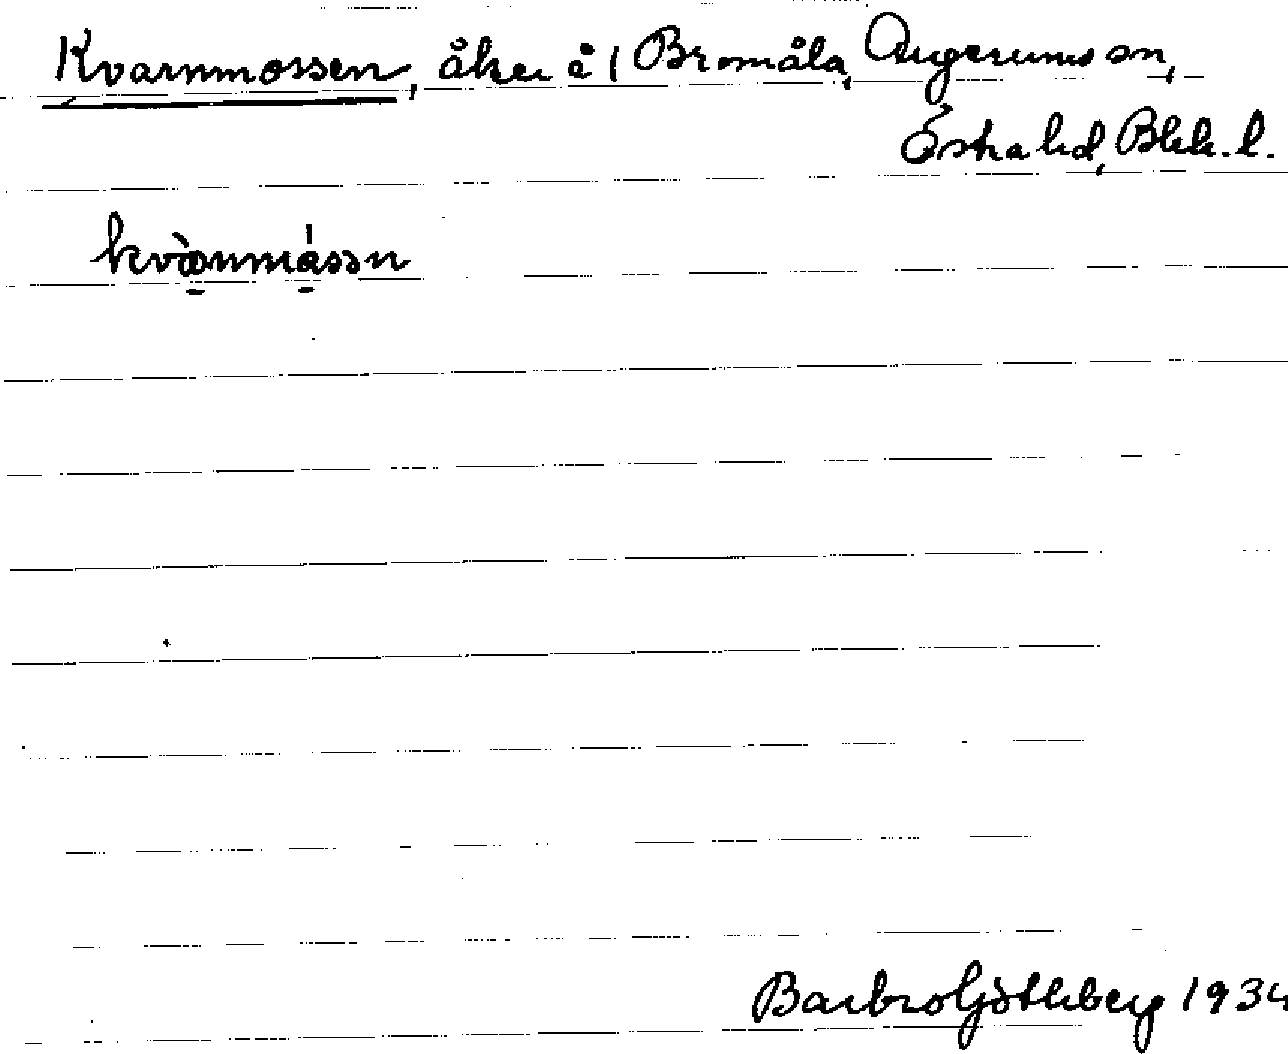 Kvarnmossen, åker å 1 Bromåla, Augerums sn,
Östra hd, Blek. l.
kvànmássn
Barbro Götheberg 1934